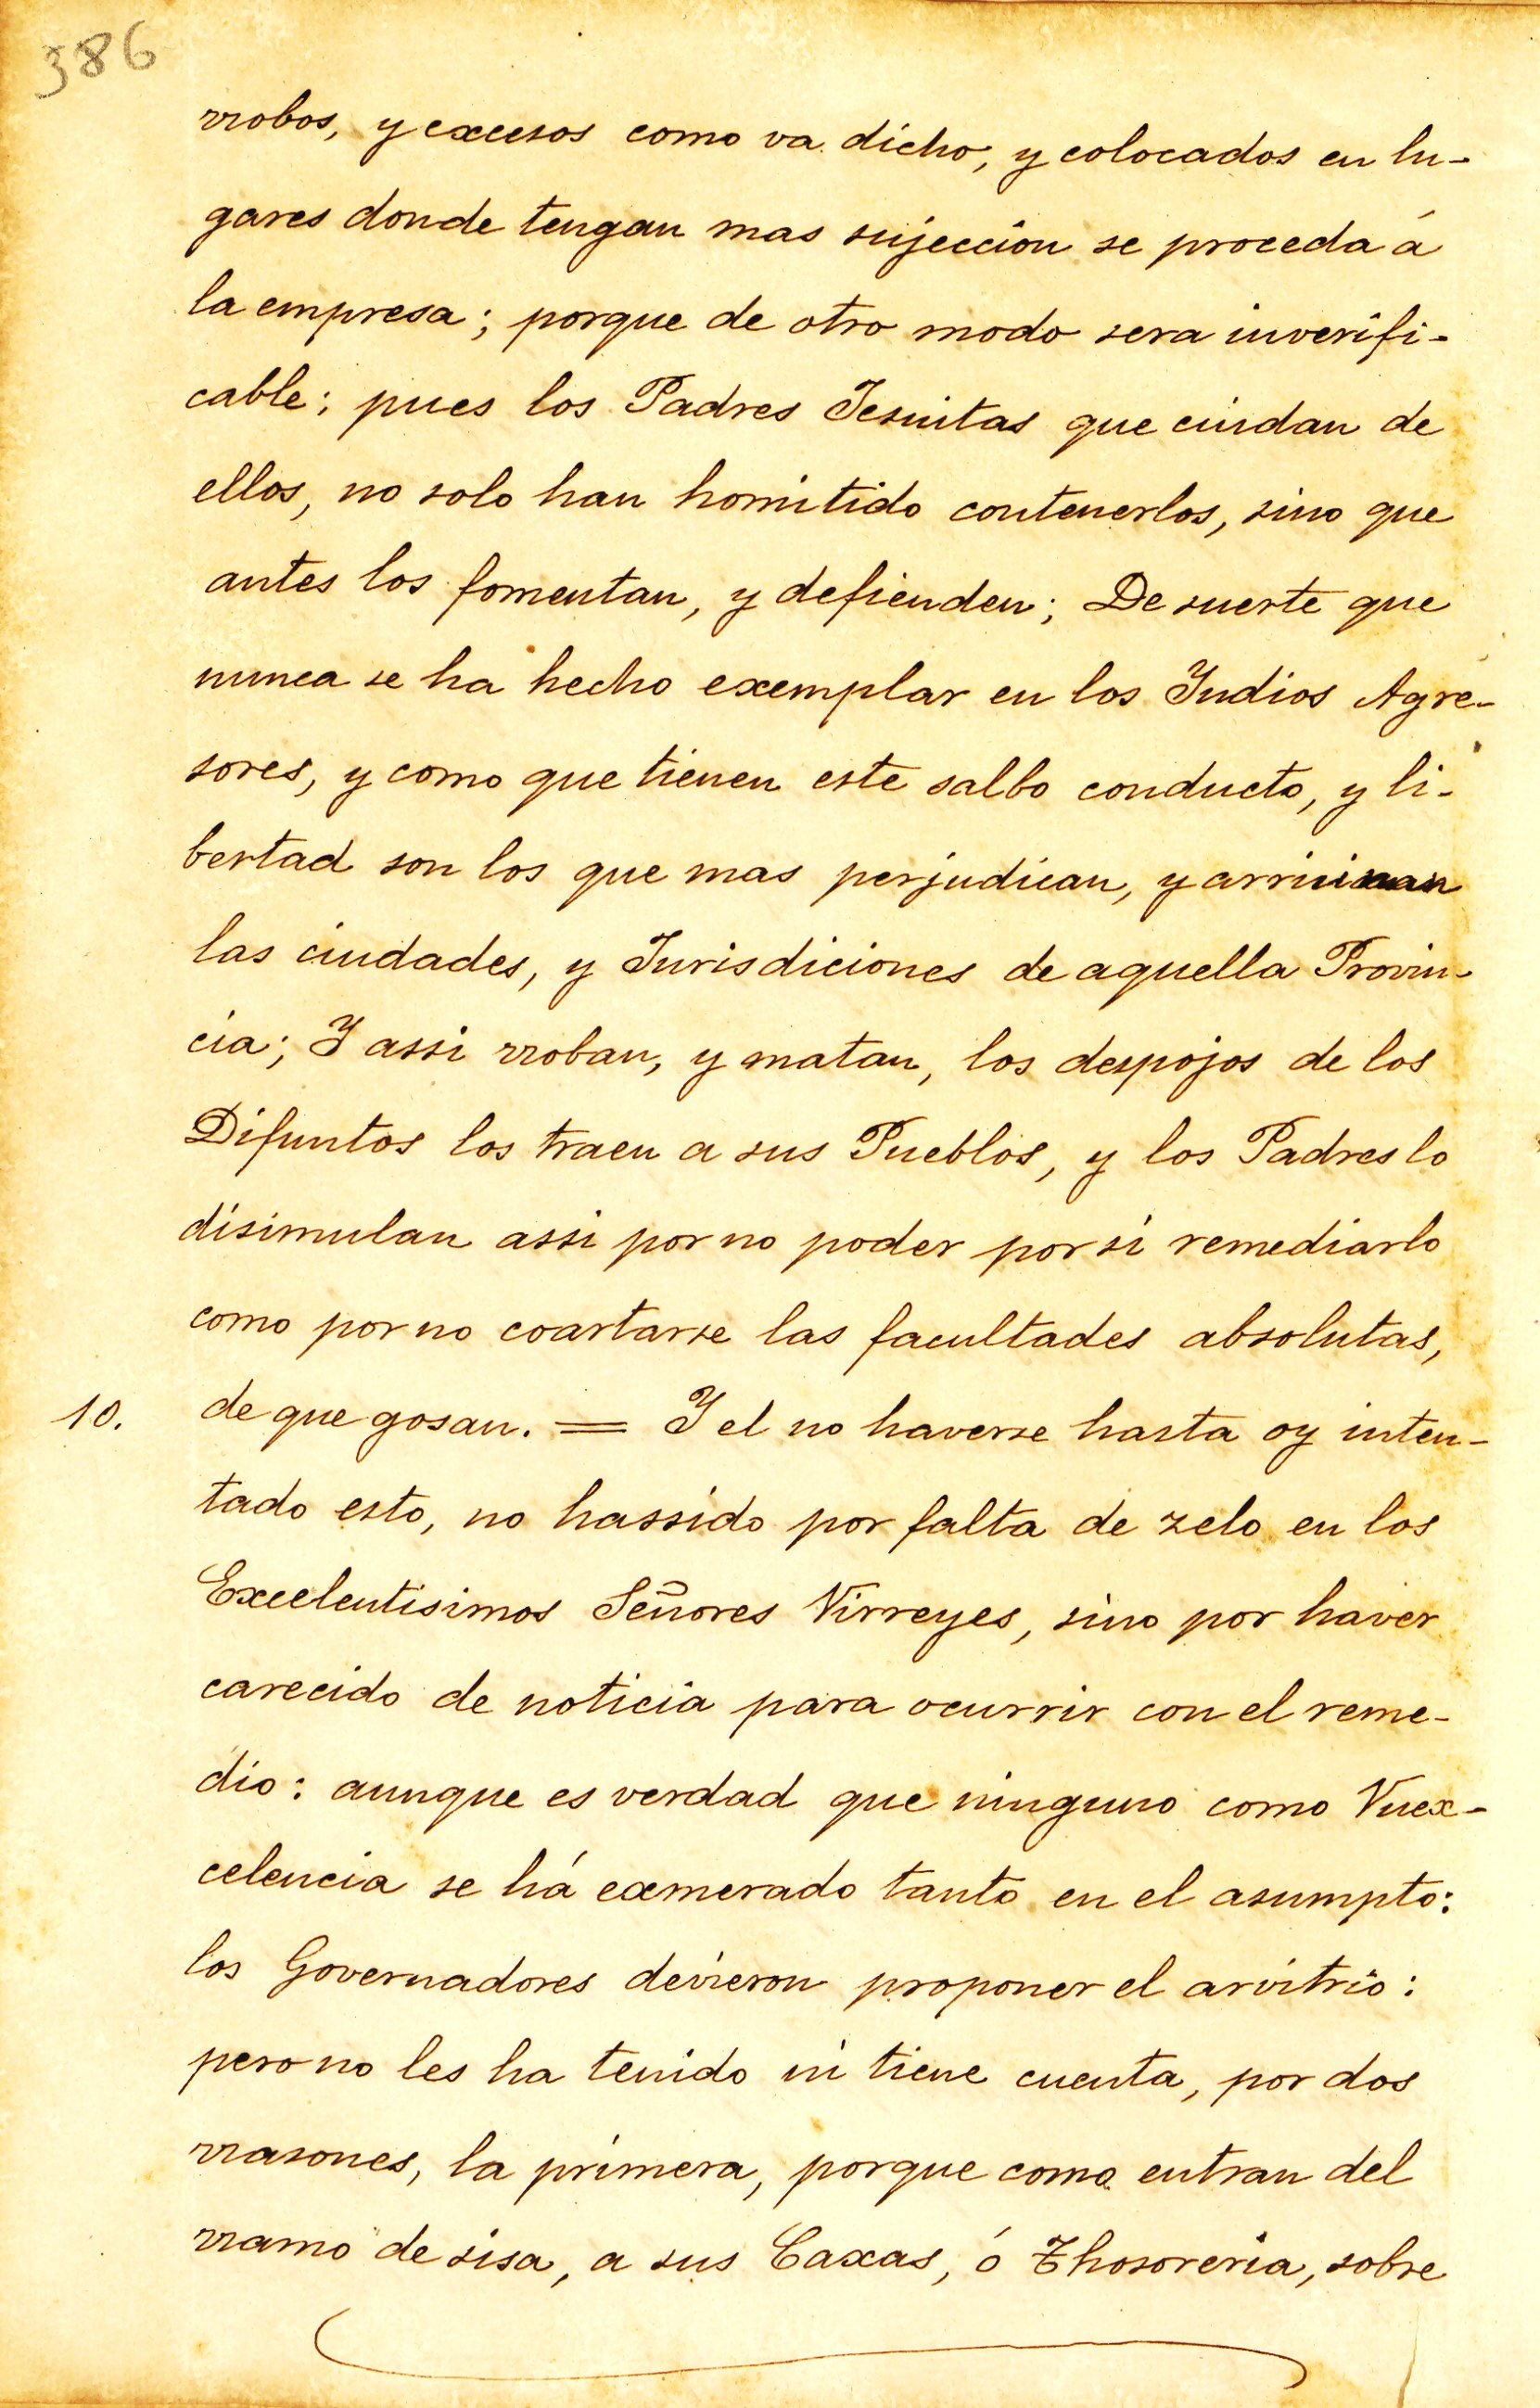 386
rrobos, y excesos como va dicho, y colocados en lu-
gares donde tengan mas sujeccion se proceda á
la empresa; porque de otro modo sera inverifi-
cable; pues los Padres Jesuitas que ciudan de
ellos, no solo han homitido contenerlos, sino que
antes los fomentan, y defienden; De suerte que
nunca se ha hecho exemplar en los Yndios Agre-
sores, y como que tienen este salbo conducto, y li-
bertad son los que mas perjudican, y arruinan
las ciudades, y Jurisdiciones de aquella Provin-
cia; Y assi rroban, y matan, los despojos de los
Difuntos los traen a sus Pueblos, y los Padres lo
disimulan assi por no poder por si remediarlo
como por no coartarse las facultades absolutas,
10. de que gosan. = Y el no haverse hasta oy inten-
tado esto, no hassido por falta de zelo en los
Excelentisimos Señores Virreyes, sino por haver
carecido de noticia para ocurrir con el reme-
dio: aunque es verdad que ninguno como Vuex-
celencia se há exmerado tanto en el asumpto:
los Governadores devieron proponer el arvitrio:
pero no les ha tenido ni tiene cuenta, por dos
rrasones, la primera, porque como entran del
rramo de sisa, a sus Caxas, ó Thosoreria, sobre